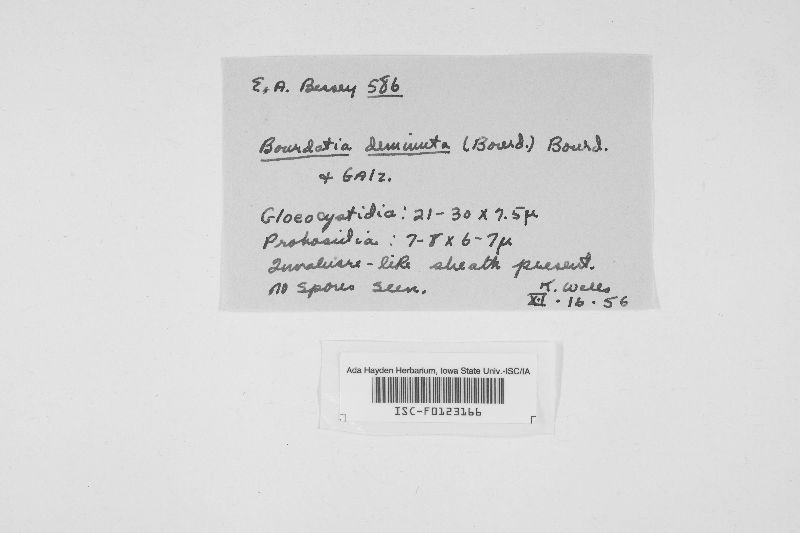 E. A. Bessey 586
Bourdotia deminuta (Bourd.) Bourd.
& Galz.
Gloeocystidia: 21-30 x 7.5µ
Probasidia: 7-8 x 6-7µ
Involucre-like sheath present.
no spores seen.
K. Wells
XI. 16. 56
Ada Hayden Herbarium, Iowa State Univ.-ISC/IA
ISC-F0123166